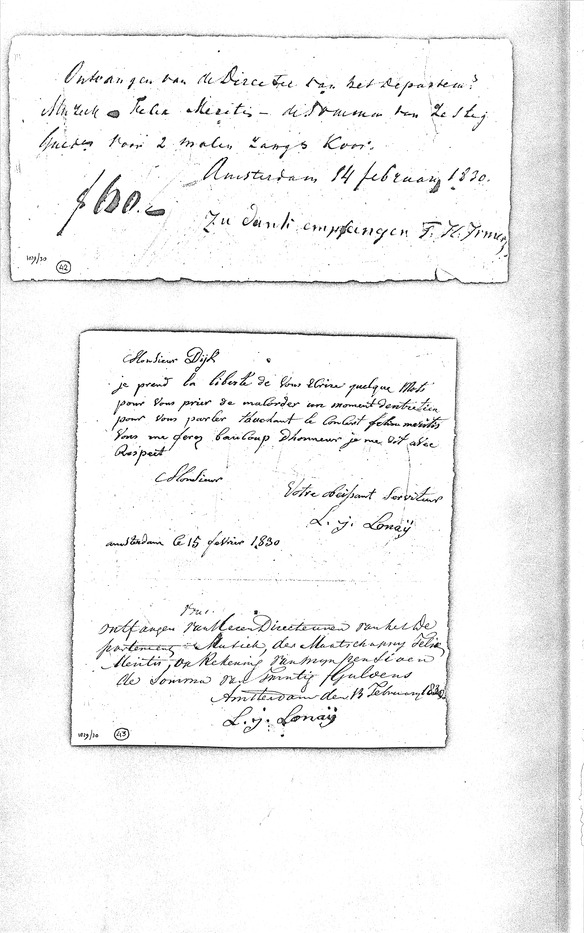 Ontvangen van de Directie van het Departemt
Muziek Felix Meritis – de Somma van Zestig
Gulden voor 2 malen Zangs Koor.
Amsterdam 14 februarij 1830.
f 60.–
Zu dank empfangen F. H.
1029/30
42
Monsieur Dijk
je prend la liberté de vous Ecrire quelque Mots
pour vous prier de malorder un moment dentretien
pour vous parler thouchant le Consert felix meritis
Vous me ferez baucoup dhonneur je me dit avec
Respect
Monsieur
Votre obeissant Serviteur
L. j. Lonaÿ
amsterdam le 15 fevrier 1830
ontfangen van Heeren Directeuren van het De
partement Musiek des Maatschappij Felix
Meritis, op Rekening van mijn pensioen
de Somma van Twintig Guldens
Amsterdam den 13 Februarij 1830
L. j. Lonaÿ
1029/30
43